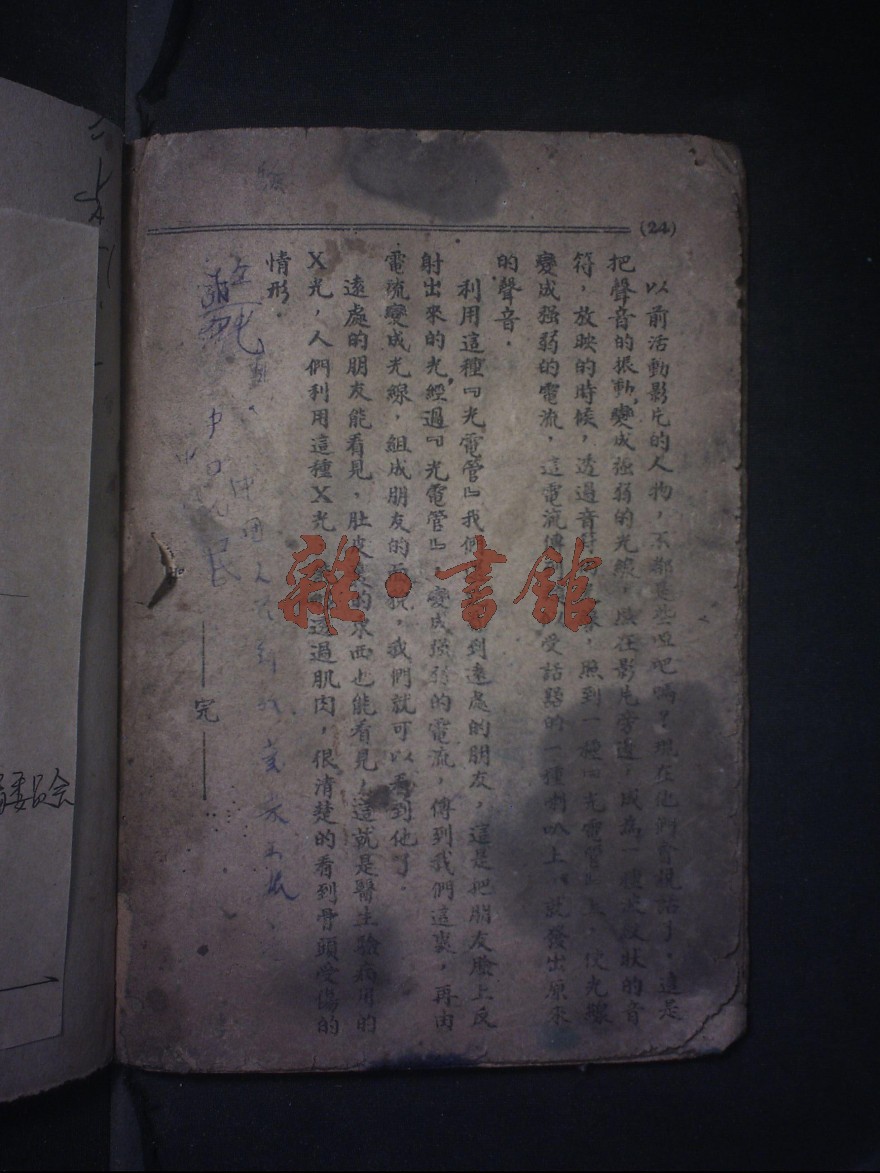 (24)
以前活動影片的人物，不都是些啞吧嗎？現在他們會說話了，這是
把聲音的振動，變成強弱的光線，照在影片旁邊，成為一種波紋狀的音
符，放映的時候，透過音符，照到一種『光電管』上，使光線
變成强弱的電流，這電流傳到受話器的一種喇叭上，就發出原來
的聲音．
利用這種『光電管』我們到遠處的朋友，這是把朋友臉上反
射出來的光，經過『光電管』，變成强弱的電流，傳到我們這裏，再由
電流變成光線，組成朋友的面貌，我們就可以看到他了．
遠處的朋友能看見，肚皮裏的東西也能看見，這就是醫生驗病用的
X光，人們利用這種X光，透過肌肉，很清楚的看到骨頭受傷的
情形．
中国人
民
——完——
委员会
雜·書館